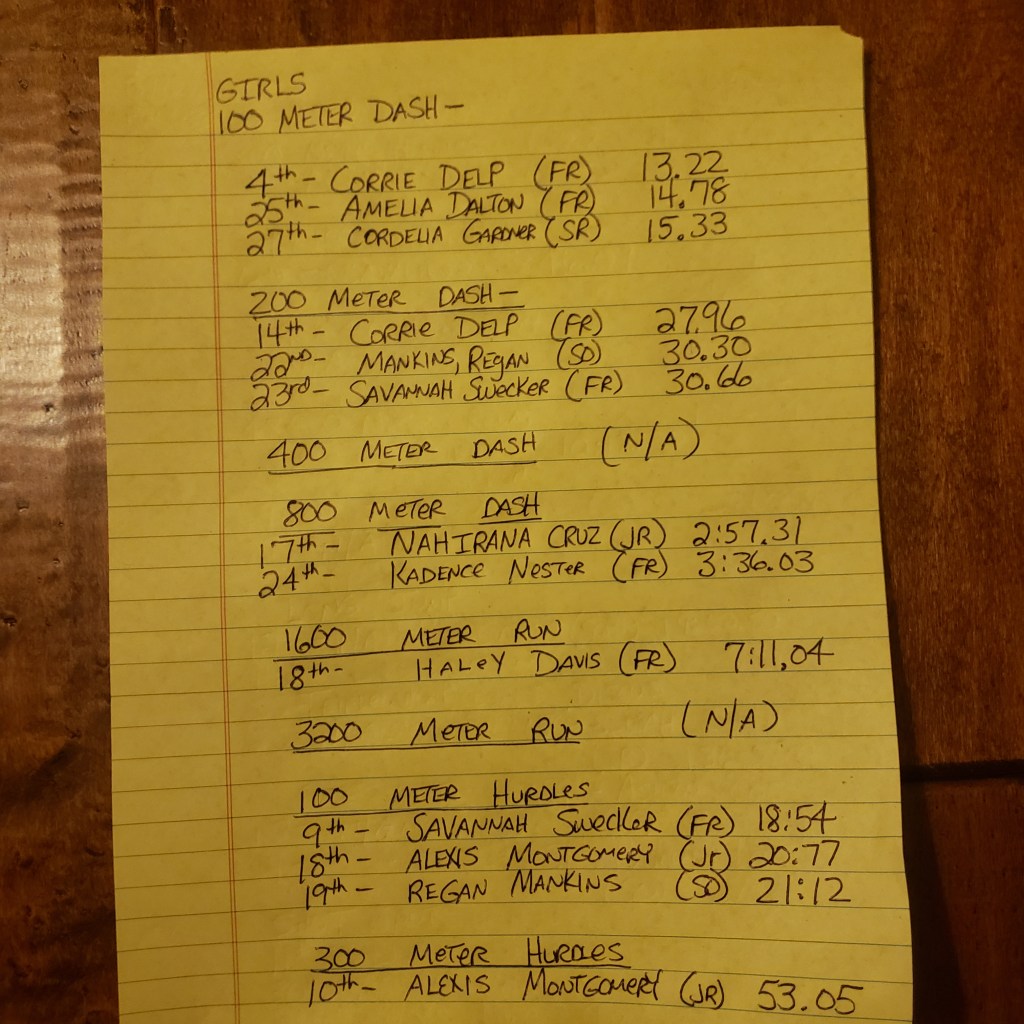 GIRLS
100 METER DASH-
4th- CORRIE DELP (FR) 13.22
25th- AMELIA DALTON (FR) 14.78
27th- CORDELIA GARDNER (SR) 15.33
200 METER DASH-
14th- CORRIE DELP (FR) 27.96
22ND- MANKINS, REGAN (SO) 30.30
23rd- SAVANNAH SWECKER (FR) 30.66
400 METER DASH (N/A)
800 METER DASH
17th- NAHIRANA CRUZ (JR) 2:57.31
24th- KADENCE NESTER (FR) 3:36.03
1600 METER RUN
18th- HALEY DAVIS (FR) 7:11,04
3200 METER RUN (N/A)
100 METER HURDLES
9th- SAVANNAH SWECKER (FR) 18:54
18th- ALEXIS MONTGOMERY (Jr) 20:77
19th- REGAN MANKINS (SO) 21:12
300 METER HURDLES
10th- ALEXIS MONTGOMERY (JR) 53.05